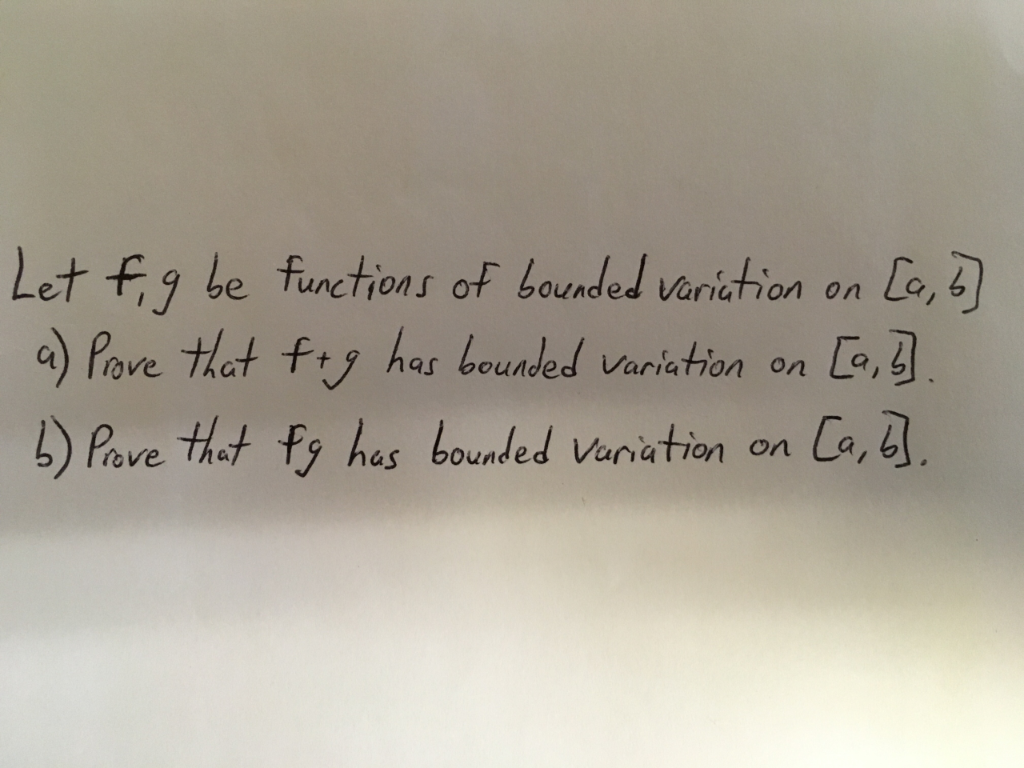 Let f, g be functions of bounded variation on [a, b]
a) Prove that f+g has bounded variation on [a, b].
b) Prove that fg has bounded variation on [a, b].